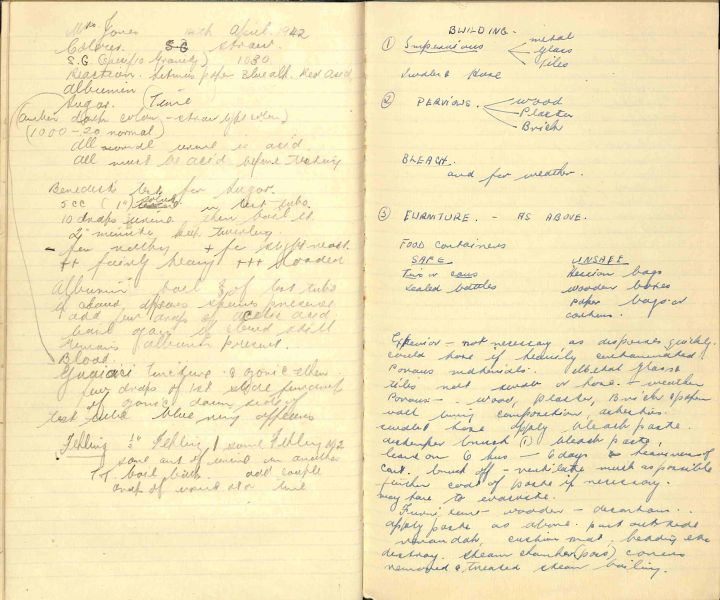 Mrs Jones 14th April 1942
Colour S.G straw
S.G (Specific Gravity) 1030
Reaction. litmus paper Blue alk. Red acid
albumen
Sugar. (Time
(amber dark colour - straw light colour)
(1000-20 normal)
all normal urine is acid
all must be acid before testing
Benedicts test for sugar.
5cc (1") in test tube.
10 drops urine then boil it
2½ minutes keep twirling
- for nothing + for slight react.
++ fairly heavy +++ loaded
Albumin boil ¾ of test tube
if cloud appears
add few drops of acetic acid
boil again if cloud still
remains albumin present.
Blood.
Guaiaci Tincture & ozonic ether
few drops of 1st
of ozonic down side of
test tube blue ring appears
Fehling ½" Fehling 1 same Fehling No 2
same amt of urine in another
T.T. boil both. add couple
drop of urine at a time
BUILDING.
① Impervious metal
Glass
Tiles
Swab & Hose
② PERVIOUS. wood
Plaster
Brick
BLEACH.
and for weather.
③ FURNITURE. - AS ABOVE.
FOOD containers
SAFE UNSAFE
Tins or cans Hessian bags
sealed bottles wooden boxes
paper bags or
cartons.
Exterior - not necessary as disperses quickly.
could hose if heavily contaminated.
Porous materials. Metal glass
tiles not swab or hose. - weather
Porous - wood, plaster, Brick & paper
wall lining composition, asbestos.
swab & hose apply bleach paste.
distemper brush ① bleach paste,
leave on 6 hrs - 6 days heaviness of
cont. brush off - ventilate much as possible
further coat of paste if necessary.
may have to evacuate.
Furniture - wooden - decontam.
apply paste as above. put outside
verandah, cushion mat. bedding etc
destroy. steam chamber (pos) covers
removed & treated steam boiling.